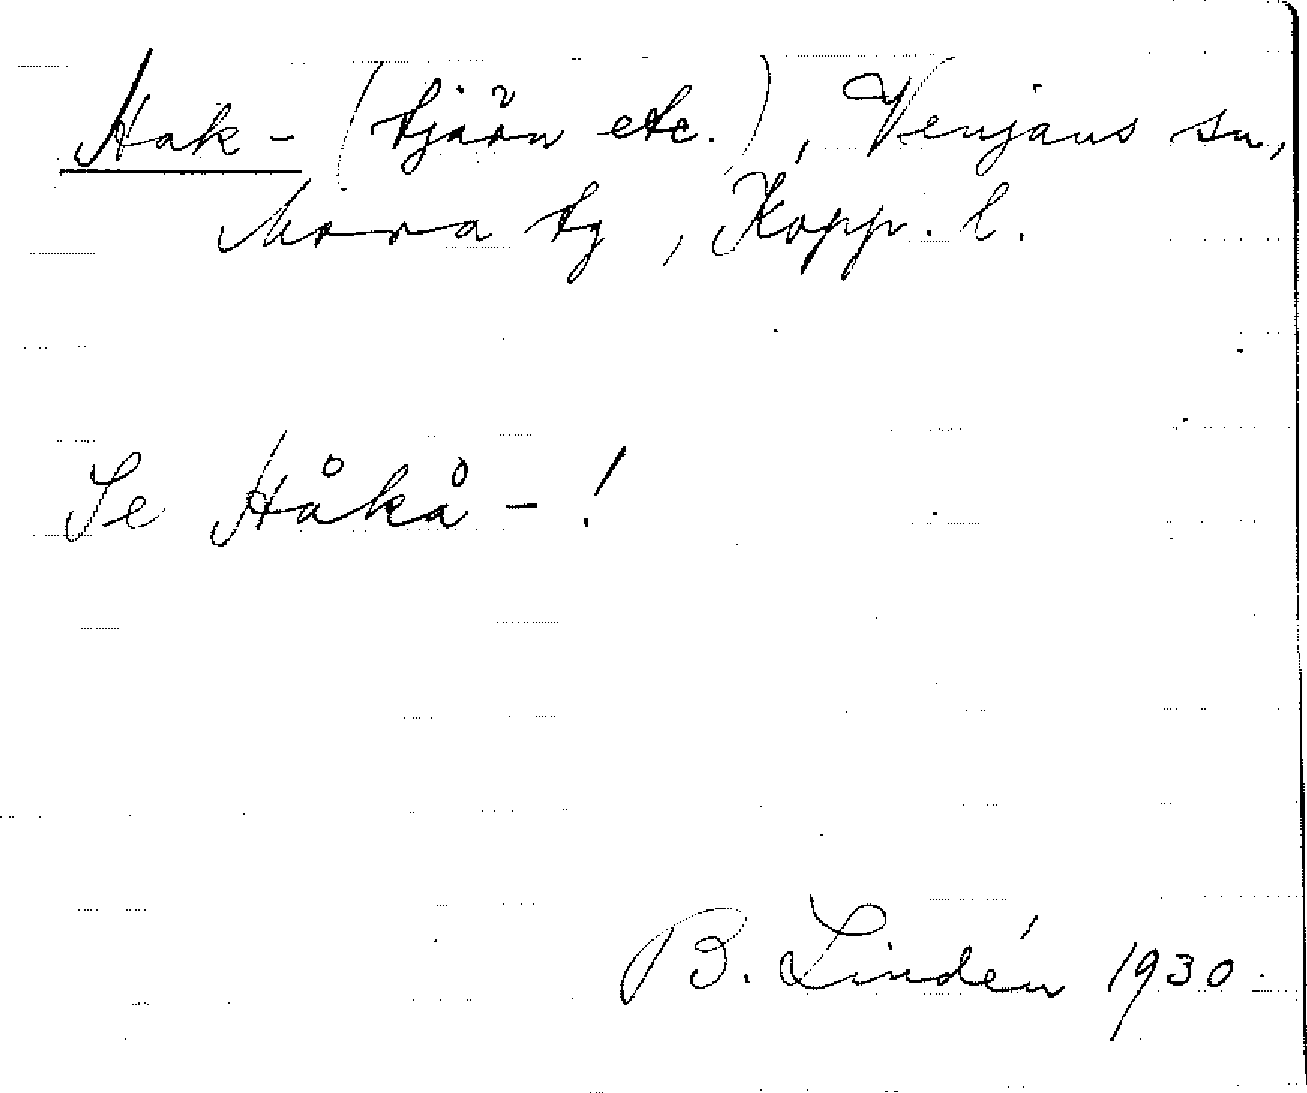 Hak- (tjärn etc.), Venjans sn,
Mora tg, Kopp. l.
Se Håkå- !
B. Lindén 1930.